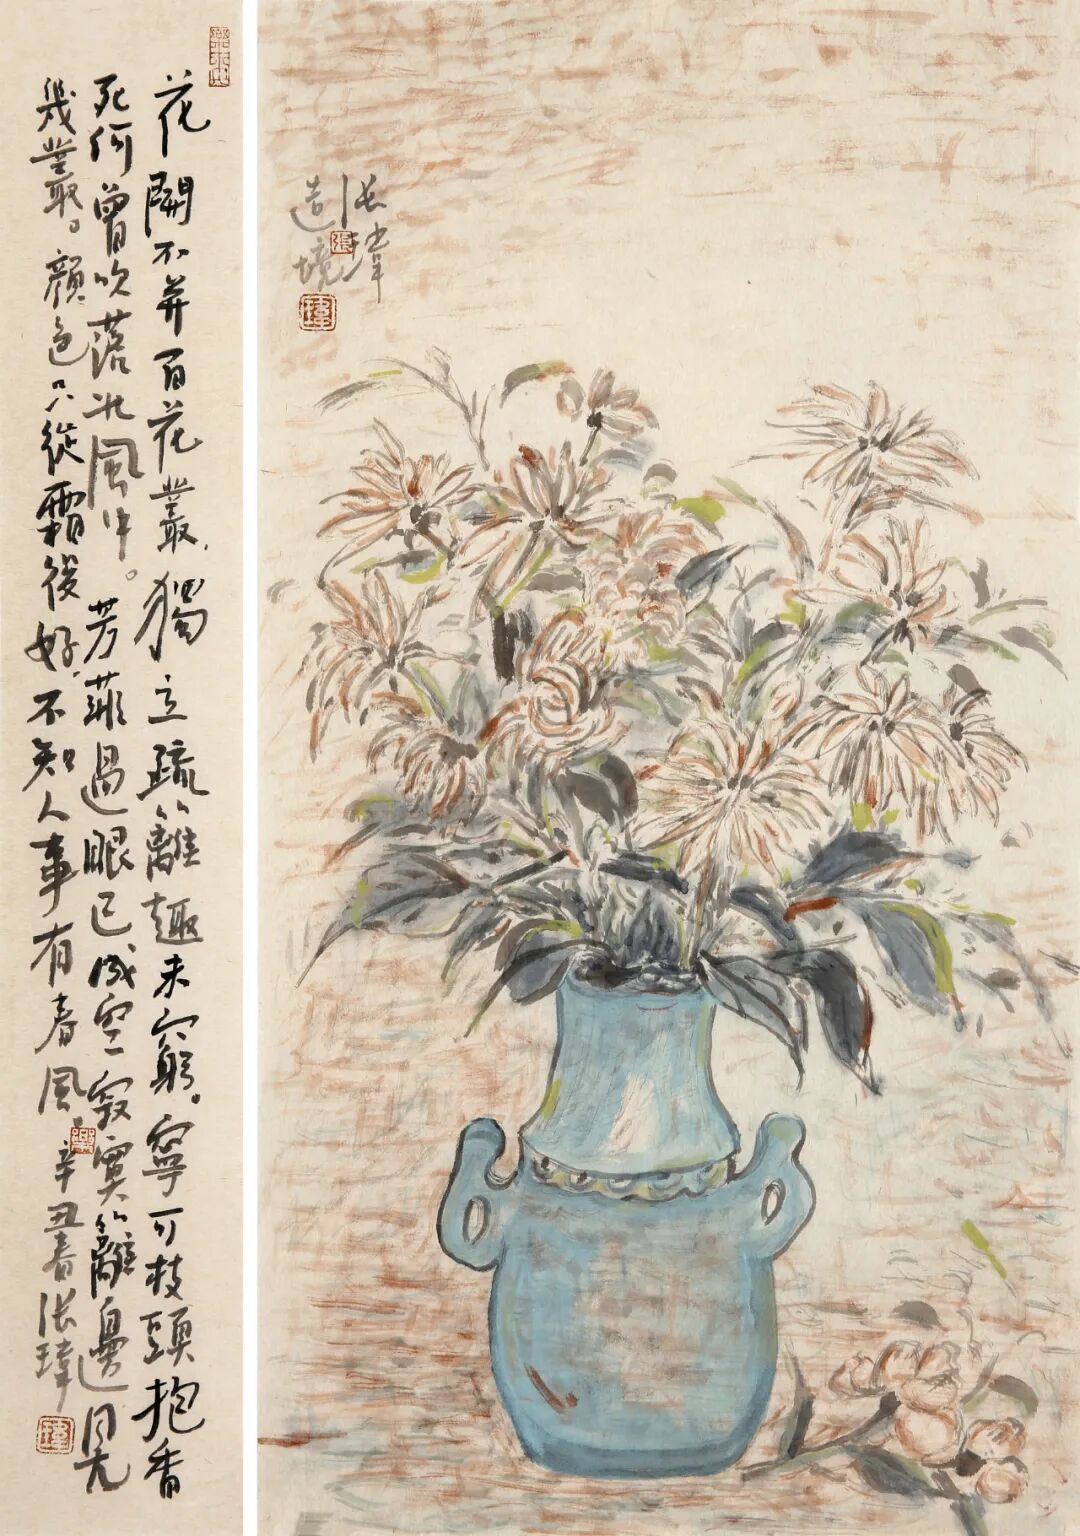 花開不并百花叢，獨立疏籬趣未窮。寧可枝頭抱香
死何曾吹落北風中。芳菲過眼已成空寂寞籬邊見
幾叢。顏色只從霜後好，不知人事有春風。辛丑春张瑋
瑋
张瑋
造境
張
瑋